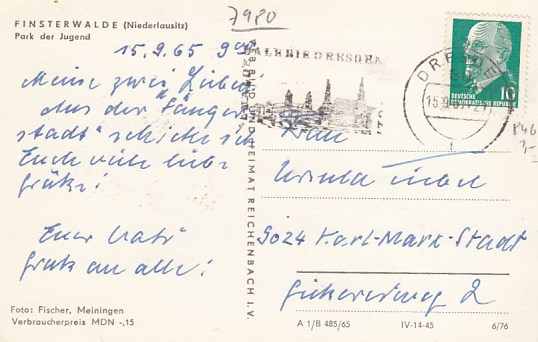 FINSTERWALDE (Niederlausitz)
Park der Jugend
7980
15.9.65
Meine zwei Lieben
Aus der "Sänger
stadt" schicke ich
Euch viele liebe
Grüße!
Euer Vati
Gruß an alle!
Foto: Fischer, Meiningen
Verbraucherpreis MDN -,15
BILD UND HEIMAT REICHENBACH I.V.
GALERIE DRESDEN
DRESDEN
DEUTSCHE
DEMOKRATISCHE REPUBLIK
10
Frau
Ursula
9024 Karl-Marx-Stadt
2
A 1/B 485/65 IV-14-45 6/76